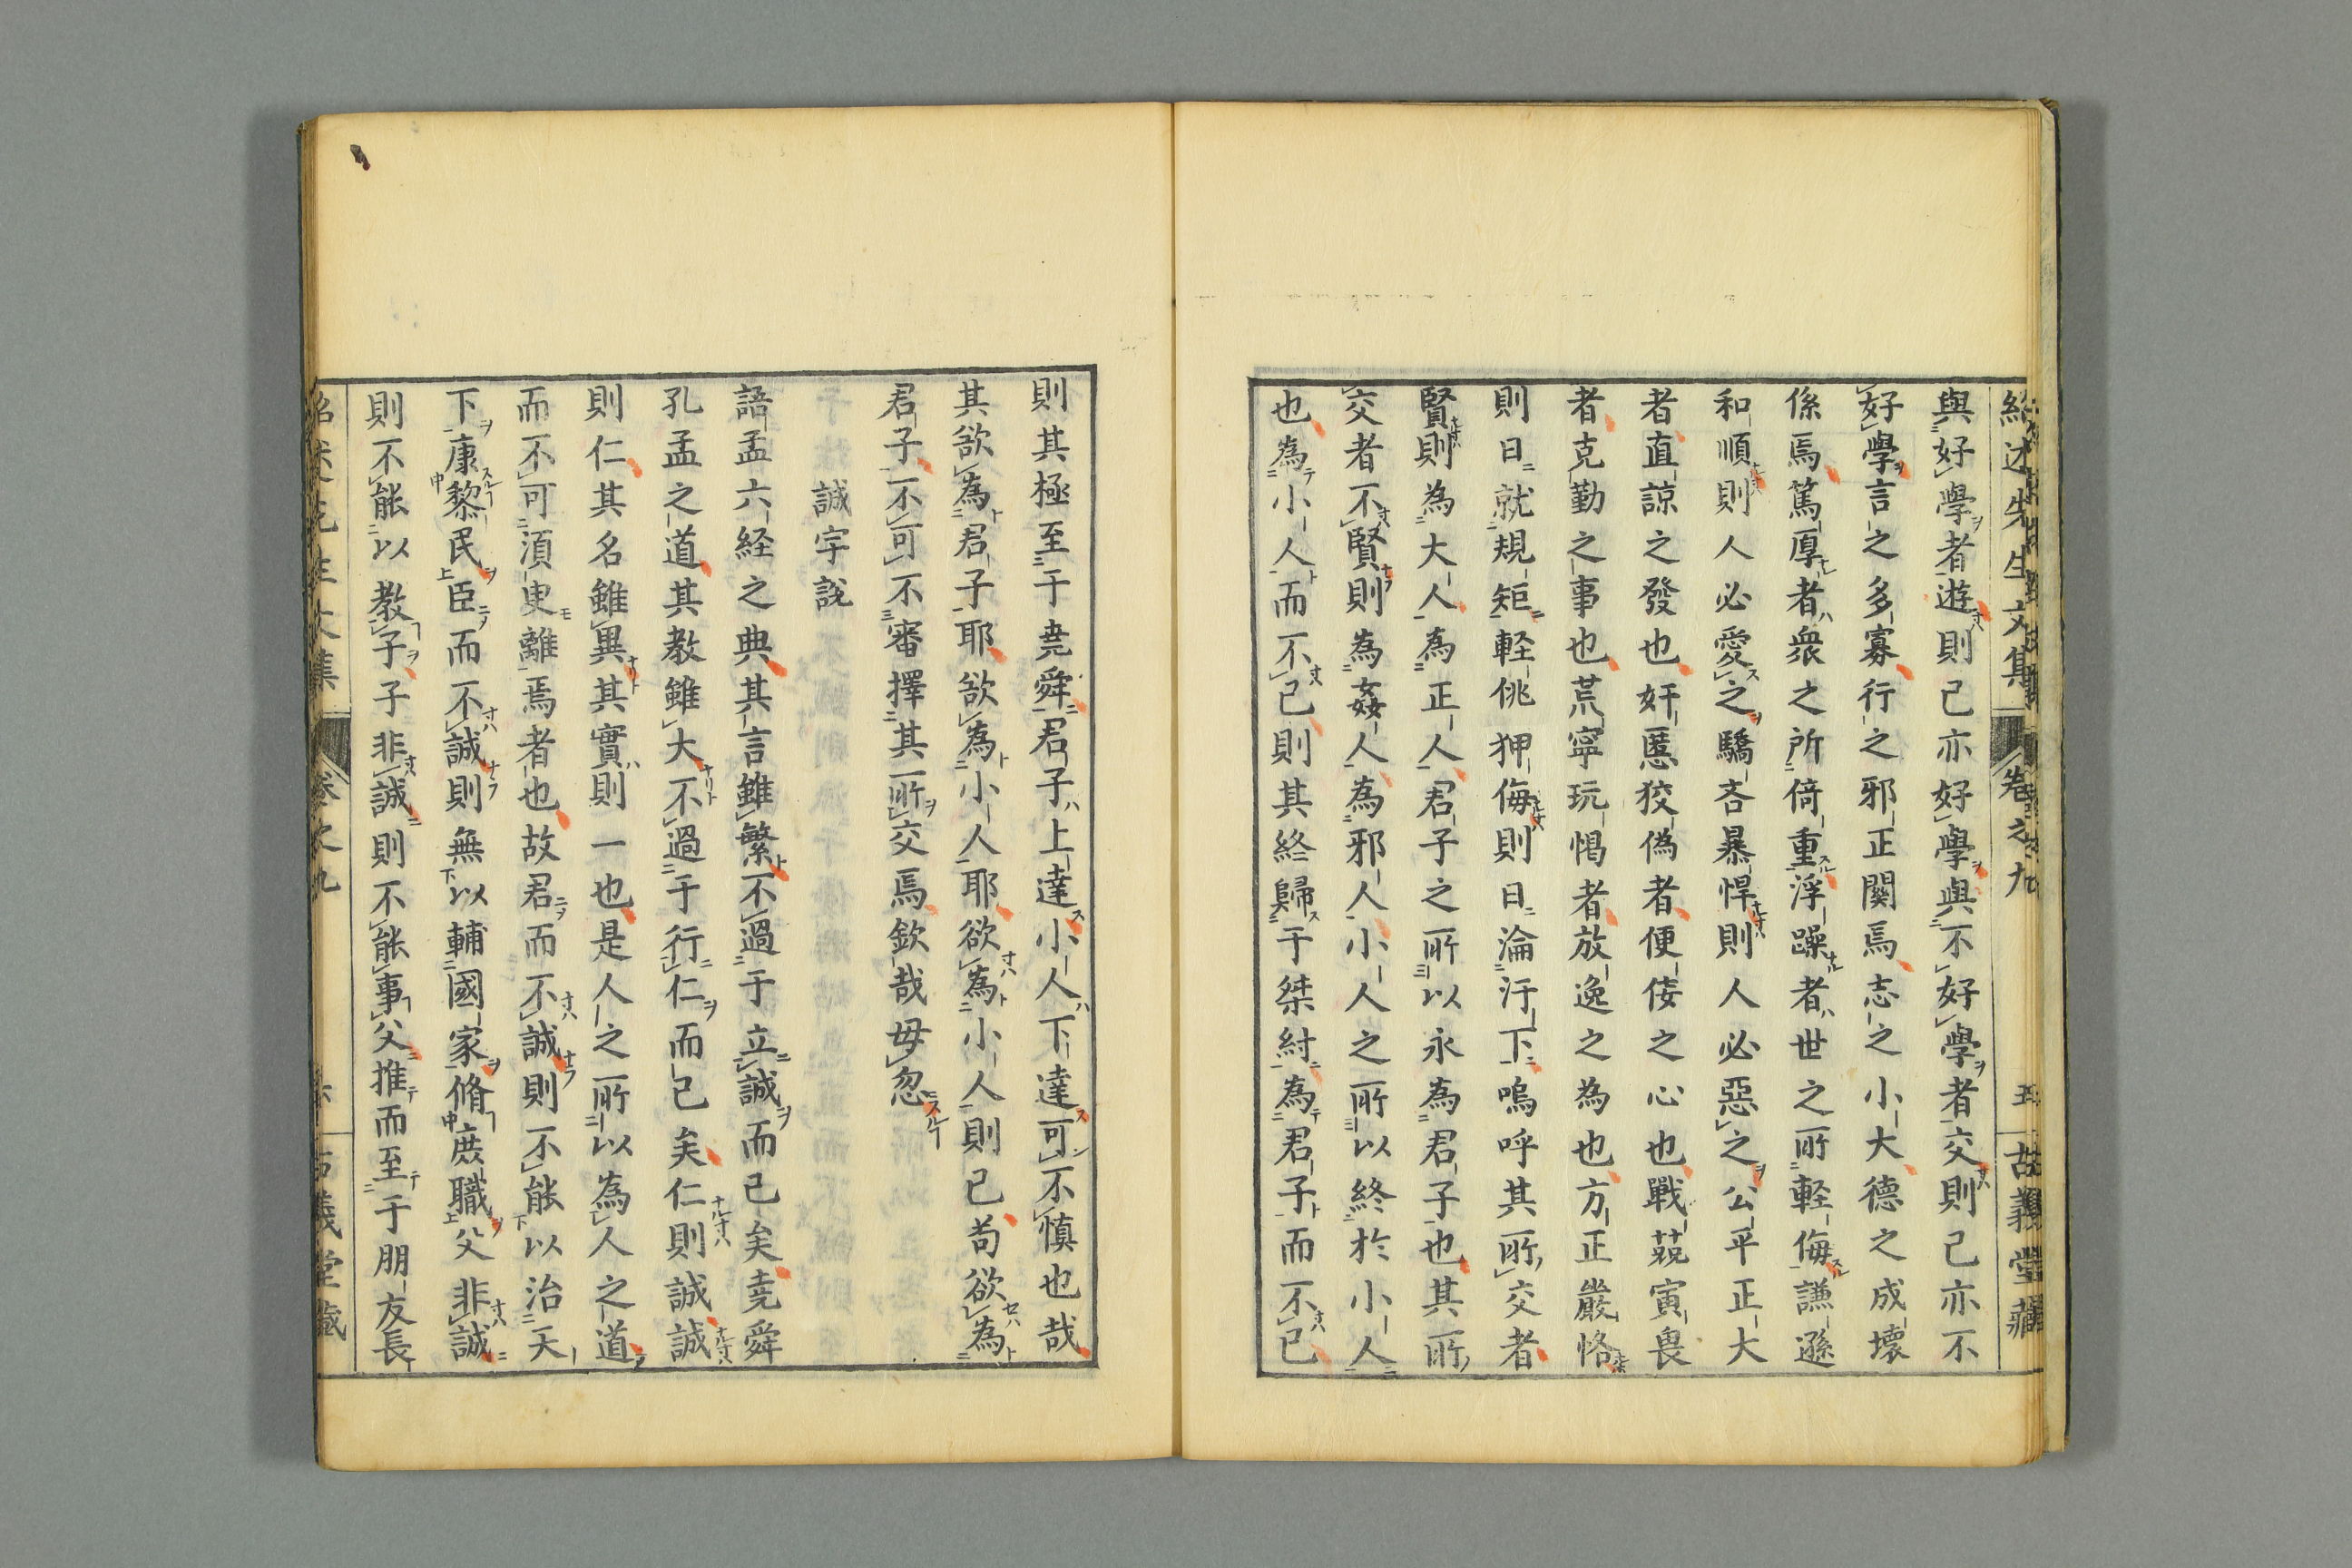 紹述先生文集　卷之九　五　古義堂藏
與好學者遊則己亦好學與不好學者交則己亦不
好學言之多寡行之邪正關焉志之小大德之成壞
係焉篤厚者衆之所倚重浮躁者世之所輕侮謙遜
和順則人必愛之驕吝暴悍則人必惡之公平正大
者直諒之發也奸慝狡偽者便佞之心也戰兢寅畏
者克勤之事也荒寧玩愒者放逸之為也方正嚴恪
則日就規矩輕佻狎侮則日淪汙下嗚呼其所交者
賢則為大人為正人君子之所以永為君子也其所
交者不賢則為姦人為邪人小人之所以終於小人
也為小人而不已則其終歸于桀紂為君子而不已
則其極至于堯舜君子上達小人下達可不慎也哉
其欲為君子耶欲為小人耶欲為小人則已苟欲為
君子不可不審擇其所交焉欽哉毋忽
誠字說
語孟六經之典其言雖繁不過于立誠而已矣堯舜
孔孟之道其教雖大不過于行仁而已矣仁則誠誠
則仁其名雖異其實則一也是人之所以為人之道
而不可須臾離焉者也故君而不誠則不能以治天
下康黎民臣而不誠則無以輔國家脩庶職父非誠
則不能以教子子非誠則不能事父推而至于朋友長
紹述先生文集　卷之九　六　古義堂藏